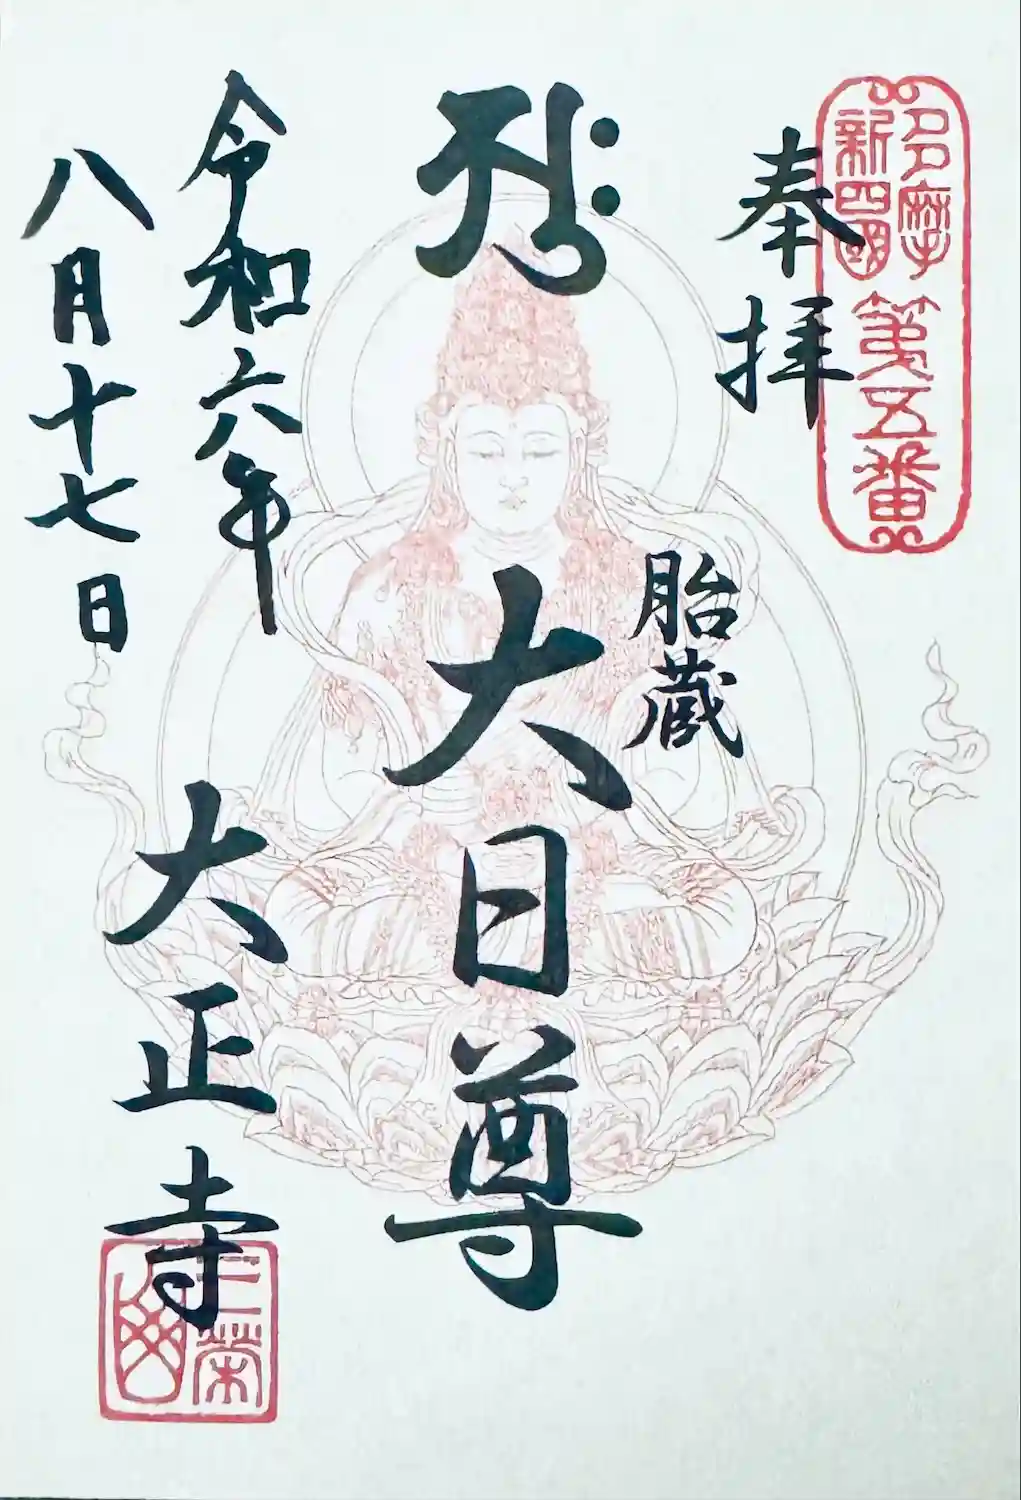 多摩
新四國
第五番
奉拝
胎蔵
大日尊
令和六年
八月十七日
大正寺